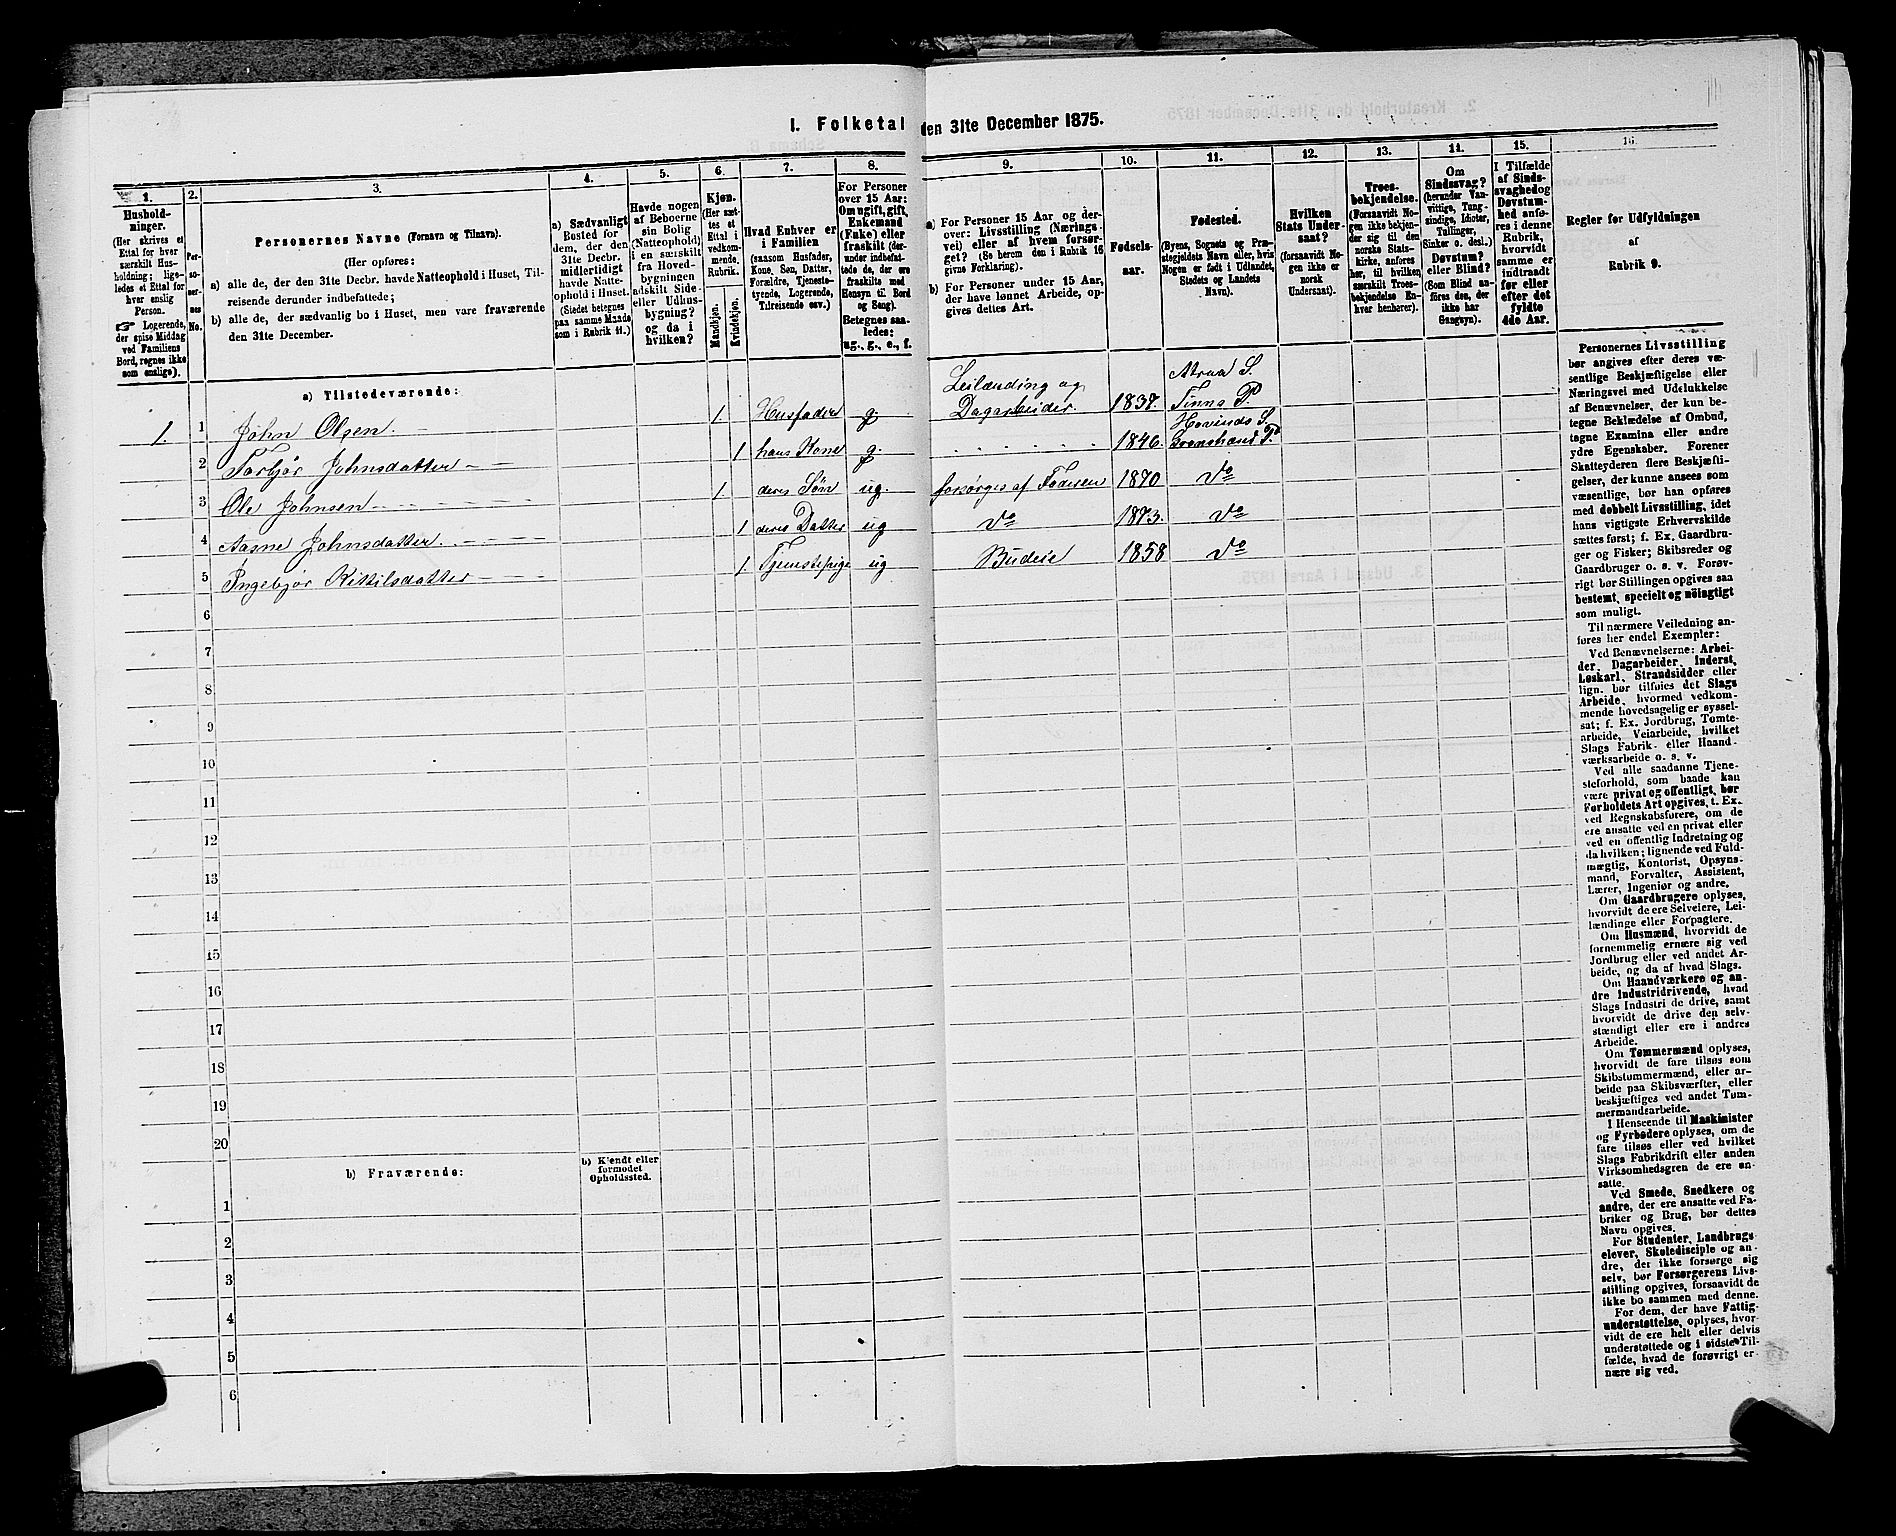 I. Folketal den 31te December 1875.
1.
Hushold-
ninger.
(Her skrives et
Ettal for hver
særskilt Hus-
holdning; lige-
ledes et Ettal for
hver enslig
Person.
☞ Logerende,
der spise Middag
ved Familiens
Bord, regnes ikke
som enslige).
2.
Per-
so-
ner-
nes
No.
3.
Personernes Navne (Fornavn og Tilnavn).
(Her opføres:
a) alle de, der den 31te Decbr. havde Natteophold i Huset, Til-
reisende derunder indbefattede;
b) alle de, der sædvanlig bo i Huset, men vare fraværende
den 31te December.
4.
a) Sædvanligt
Bosted for
dem, der den
31te Decbr.
midlertidigt
havde Natte-
ophold i Huset.
(Stedet betegnes
paa samme Maade
som i Rubrik 11.)
5.
Havde nogen
af Beboerne
sin Bolig
(Natteophold)
i en særskilt
fra Hoved-
bygningen
adskilt Side-
eller Udhus-
bygning?
og da i
hvilken?
6.
Kjøn.
(Her sæt-
tes et
Ettal i
vedkom-
mende
Rubrik.
Mandkjøn.
Kvindekjøn.
7.
Hvad Enhver er
i Familien
(saasom Husfader,
Kone, Søn, Datter,
Forældre, Tjeneste-
tyende, Logerende,
Tilreisende osv.)
8.
For Personer
over 15 Aar:
Om ugift, gift,
Enkemand
(Enke) eller
fraskilt (der-
under indbefat-
tede de, der ere
fraskilte med
Hensyn til Bord
og Seng).
Betegnes saa-
ledes:
ug., g., e., f.
9.
a) For Personer 15 Aar og der-
over: Livsstilling (Nærings-
vei) eller af hvem forsør-
get? (Se herom den i Rubrik 16
givne Forklaring).
b) For Personer under 15 Aar,
der have lønnet Arbeide, op-
gives dettes Art.
10.
Fødsels-
aar.
11.
Fødested.
(Byens, Sognets og Præ-
stegjeldets Navn eller, hvis
Nogen er født i Udlandet,
Stedets og Landets
Navn).
12.
Hvilken
Stats Under-
saat?
(forsaavidt No-
gen ikke er
norsk
Undersaat).
13.
Troes-
bekjendelse.
(Forsaavidt No-
gen ikke bekjen-
der sig til den
norske Stats-
kirke, anføres
her, til hvilken
særskilt Troes-
bekjendelse En-
hver henhører).
14.
Om
Sindssvag?
(herunder Van-
vittige, Tung-
sindige, Idioter,
Tullinger,
Sinker o. desl.)
Døvstum?
eller Blind?
(Som Blind an-
føres den, der
ikke har
Gangsyn).
15.
I Tilfælde
af Sinds-
svaghed og
Døvstum-
hed anfø-
res i denne
Rubrik,
hvorvidt
samme er
indtraadt
før eller
efter det
fyldte
4de Aar.
16.
Regler for Udfyldningen
af
Rubrik 9.
a) Tilstedeværende:
1. 1 John Olsen 1. Husfader g. Leilænding og Dagarbeider. 1837. Atraa S. Tinns P.
2 Torbjør Johnsdatter 1 hans Kone g. 1846. Hovinds S. Gransherad P.
3 Ole Johnsen 1. deres Søn ug. forsørges af Faderen 1870 Do
4 Aasne Johnsdatter. 1 deres Datter ug Do 1873. Do
5 Ingebjør Kittilsdatter 1. Tjenestepige ug Budeie 1858 Do
6
7
8
9
10
11
12
13
14
15
16
17
18
19
20
b) Fraværende:
b) Kjendt eller
formodet
Opholdssted.
1
2
3
4
5
6
Personernes Livsstilling
bør angives efter deres væ-
sentlige Beskjæftigelse eller
Næringsvei med Udelukkelse
af Benævnelser, der kun be-
tegne Beklædelse af Ombud,
tagne Examina eller andre
ydre Egenskaber. Forener
Skatteyderen flere Beskjæfti-
gelser, der kunne ansees som
væsentlige, bør han opføres
med dobbelt Livsstilling, idet
hans vigtigste Erhvervskilde
sættes først; f. Ex. Gaardbru-
ger og Fisker; Skibsreder og
Gaardbruger o. s. v. Forøv-
rigt bør Stillingen opgives saa
bestemt, specielt og nöiagtigt
som muligt.
Til nærmere Veiledning an-
føres her endel Exempler:
Ved Benævnelserne: Arbei-
der, Dagarbeider, Inderst,
Løskarl, Strandsidder eller
lign. bør tilføies det Slags
Arbeide, hvormed vedkom-
mende hovedsagelig er syssel-
sat; f. Ex. Jordbrug, Tømte-
arbeide, Veiarbeide, hvilket
Slags Fabrik- eller Haand-
værksarbeide o. s. v.
Ved alle saadanne Tjene-
steforhold, som baade kan
være privat og offentligt, bør
Forholdets Art opgives, t. Ex.
ved Regnskabsførere, om de
ere ansatte ved en privat eller
ved en offentlig Indretning og
da hvilken; lignende ved Fuld-
mægtig, Kontorist, Opsyns-
mand, Forvalter, Assistent,
Lærer, Ingeniør og andre.
Om Gaardbrugere oplyses,
hvorvidt de ere Selveiere, Lei-
lændinge eller Forpagtere.
Om Husmænd, hvorvidt de
fornemmelig ernære sig ved
Jordbrug eller ved andet Ar-
beide, og da af hvad Slags.
Om Haandværkere og an-
dre Industridrivende, hvad
Slags Industri de drive, samt
hvorvidt de drive den selv-
stændigt eller ere i andres
Arbeide.
Om Tømmermænd oplyses,
hvorvidt de fare tilsøs som
Skibstømmermænd, eller ar-
beide paa Skibsværfter, eller
beskjæftiges ved andet Tøm-
mermandsarbeide.
I Henseende til Maskinister
og Fyrbødere oplyses, om de
fare tilsøs eller ved hvilket
Slags Fabrikdrift eller anden
Virksomhedsgren de ere an-
satte.
Ved Smede, Snedkere og
andre, der ere ansatte ved Fa-
briker og Brug, bør dettes
Navn opgives.
For Studenter, Landbrugs-
elever, Skoledisciple og an-
dre, der ikke forsørge sig
selv, bør Forsørgerens Livs-
stilling opgives, forsaavidt de
ikke bo sammen med denne.
For dem, der have Fattig-
understøttelse, oplyses, hvor-
vidt de ere helt eller delvis
understøttede og i sidste Til-
fælde, hvad de forøvrigt er-
nære sig ved.